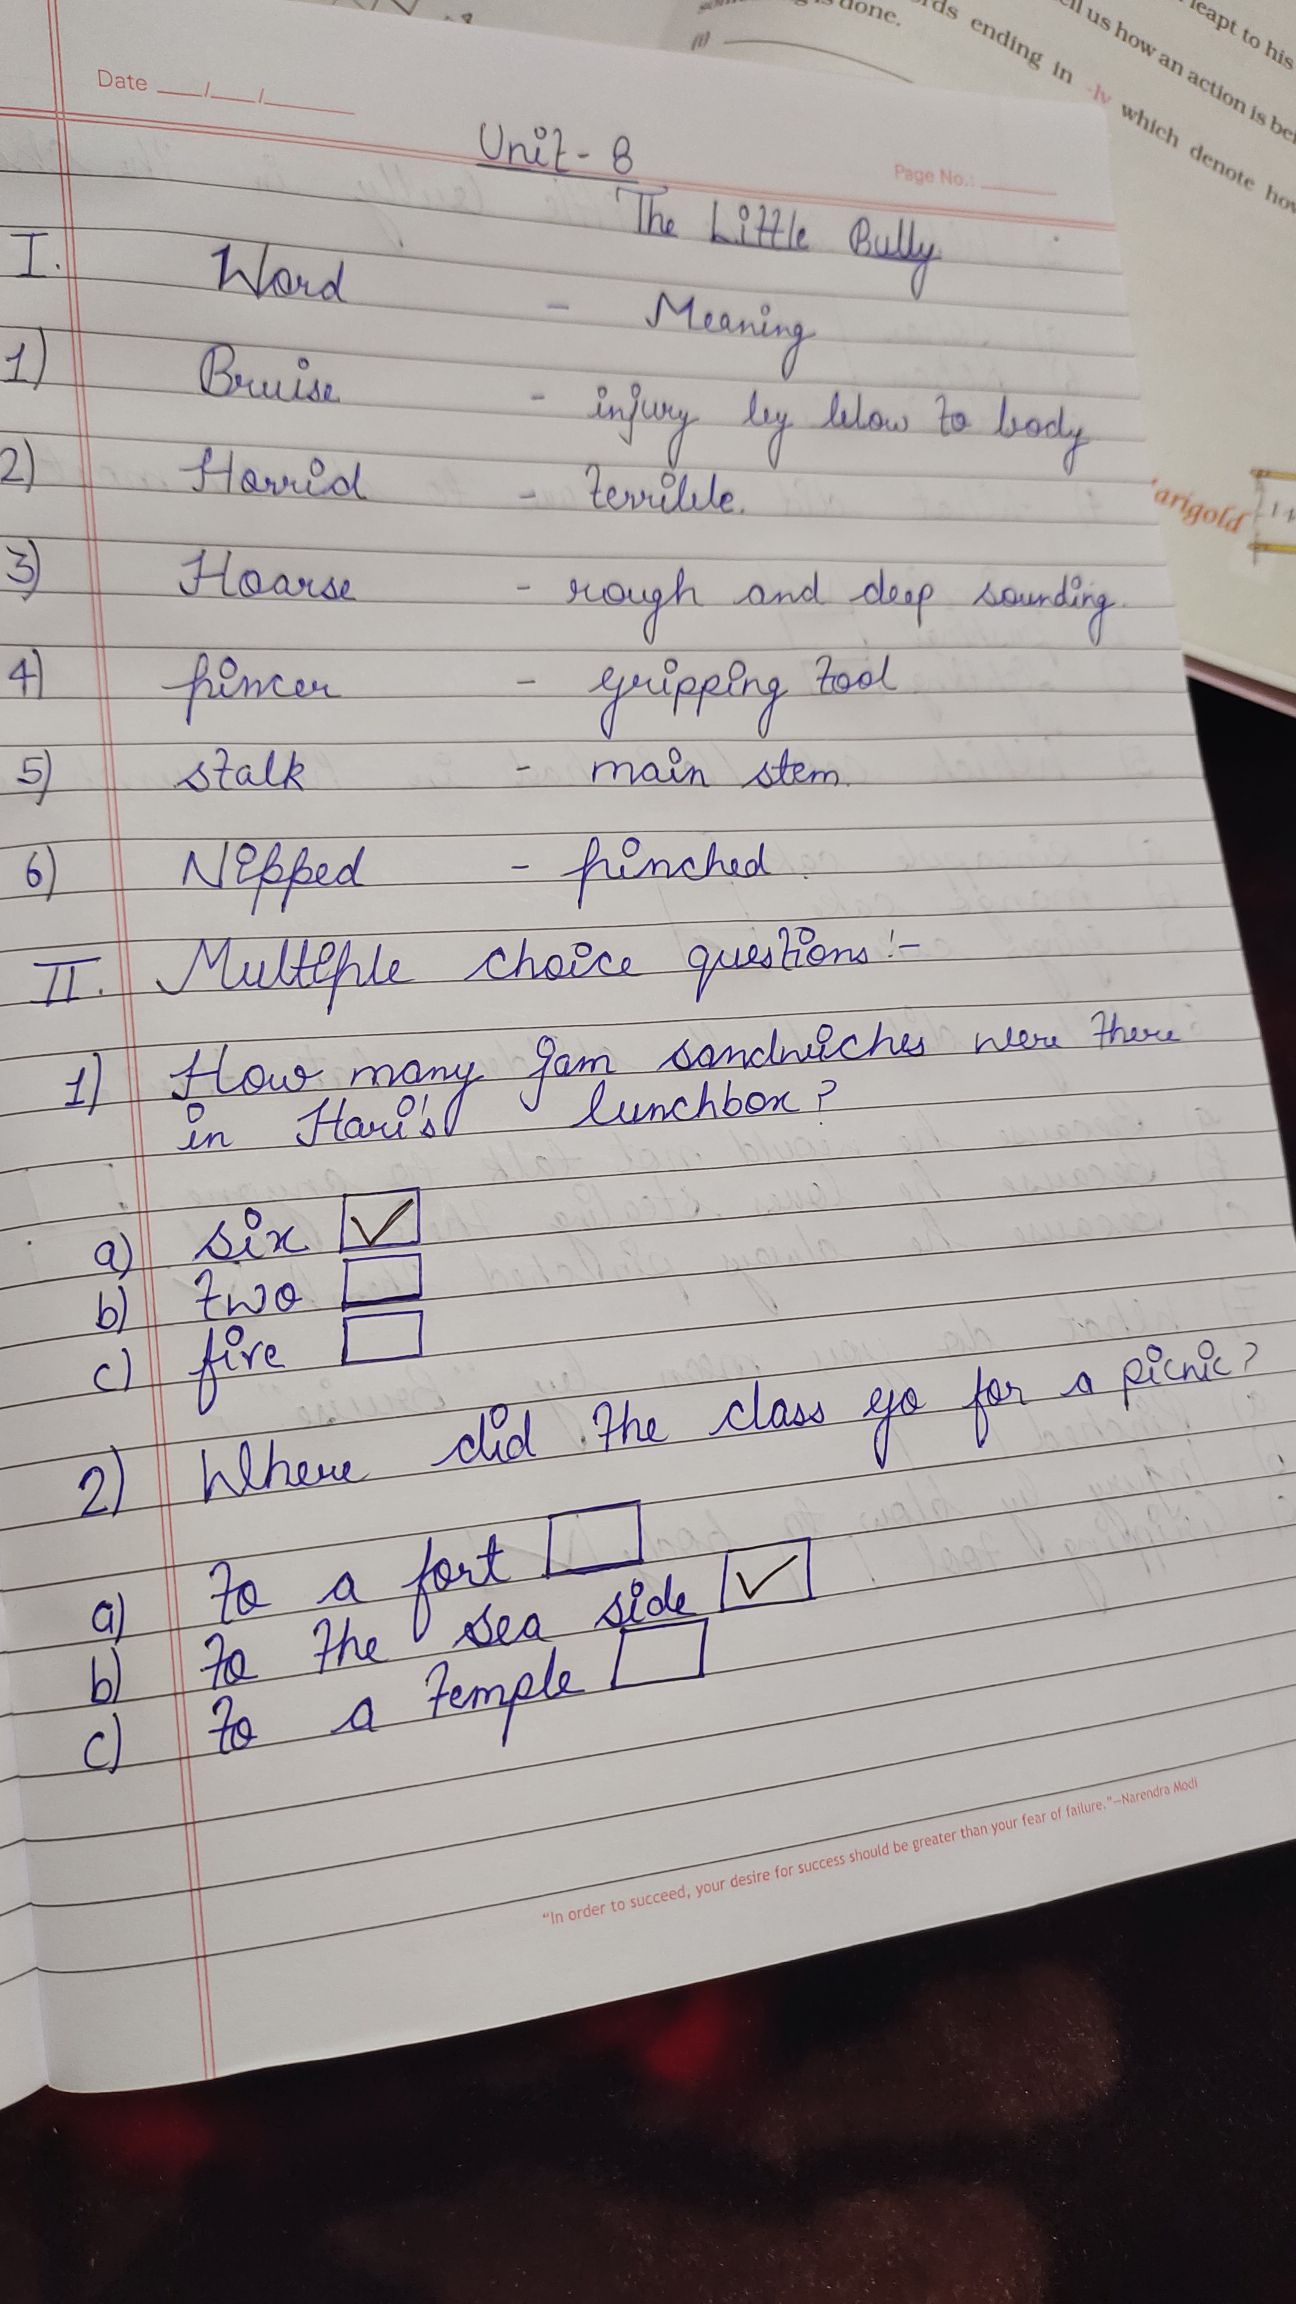 is done.
rds ending in -ly which denote how
ell us how an action is bei
leapt to his
(i)
Date __/__/____
Page No.: ____
Unit - 8
The Little Bully
I. Word - Meaning
1) Bruise - injury by blow to body
2) Horrid - terrible.
3) Hoarse - rough and deep sounding.
4) pincer - gripping tool
5) stalk - main stem.
6) Nipped - pinched.
II. Multiple choice questions:-
1) How many jam sandwiches were there
in Hari's lunchbox?
a) six ✓
b) two
c) five
2) Where did the class go for a picnic?
a) to a fort
b) to the sea side ✓
c) to a temple
"In order to succeed, your desire for success should be greater than your fear of failure."—Narendra Modi
arigold